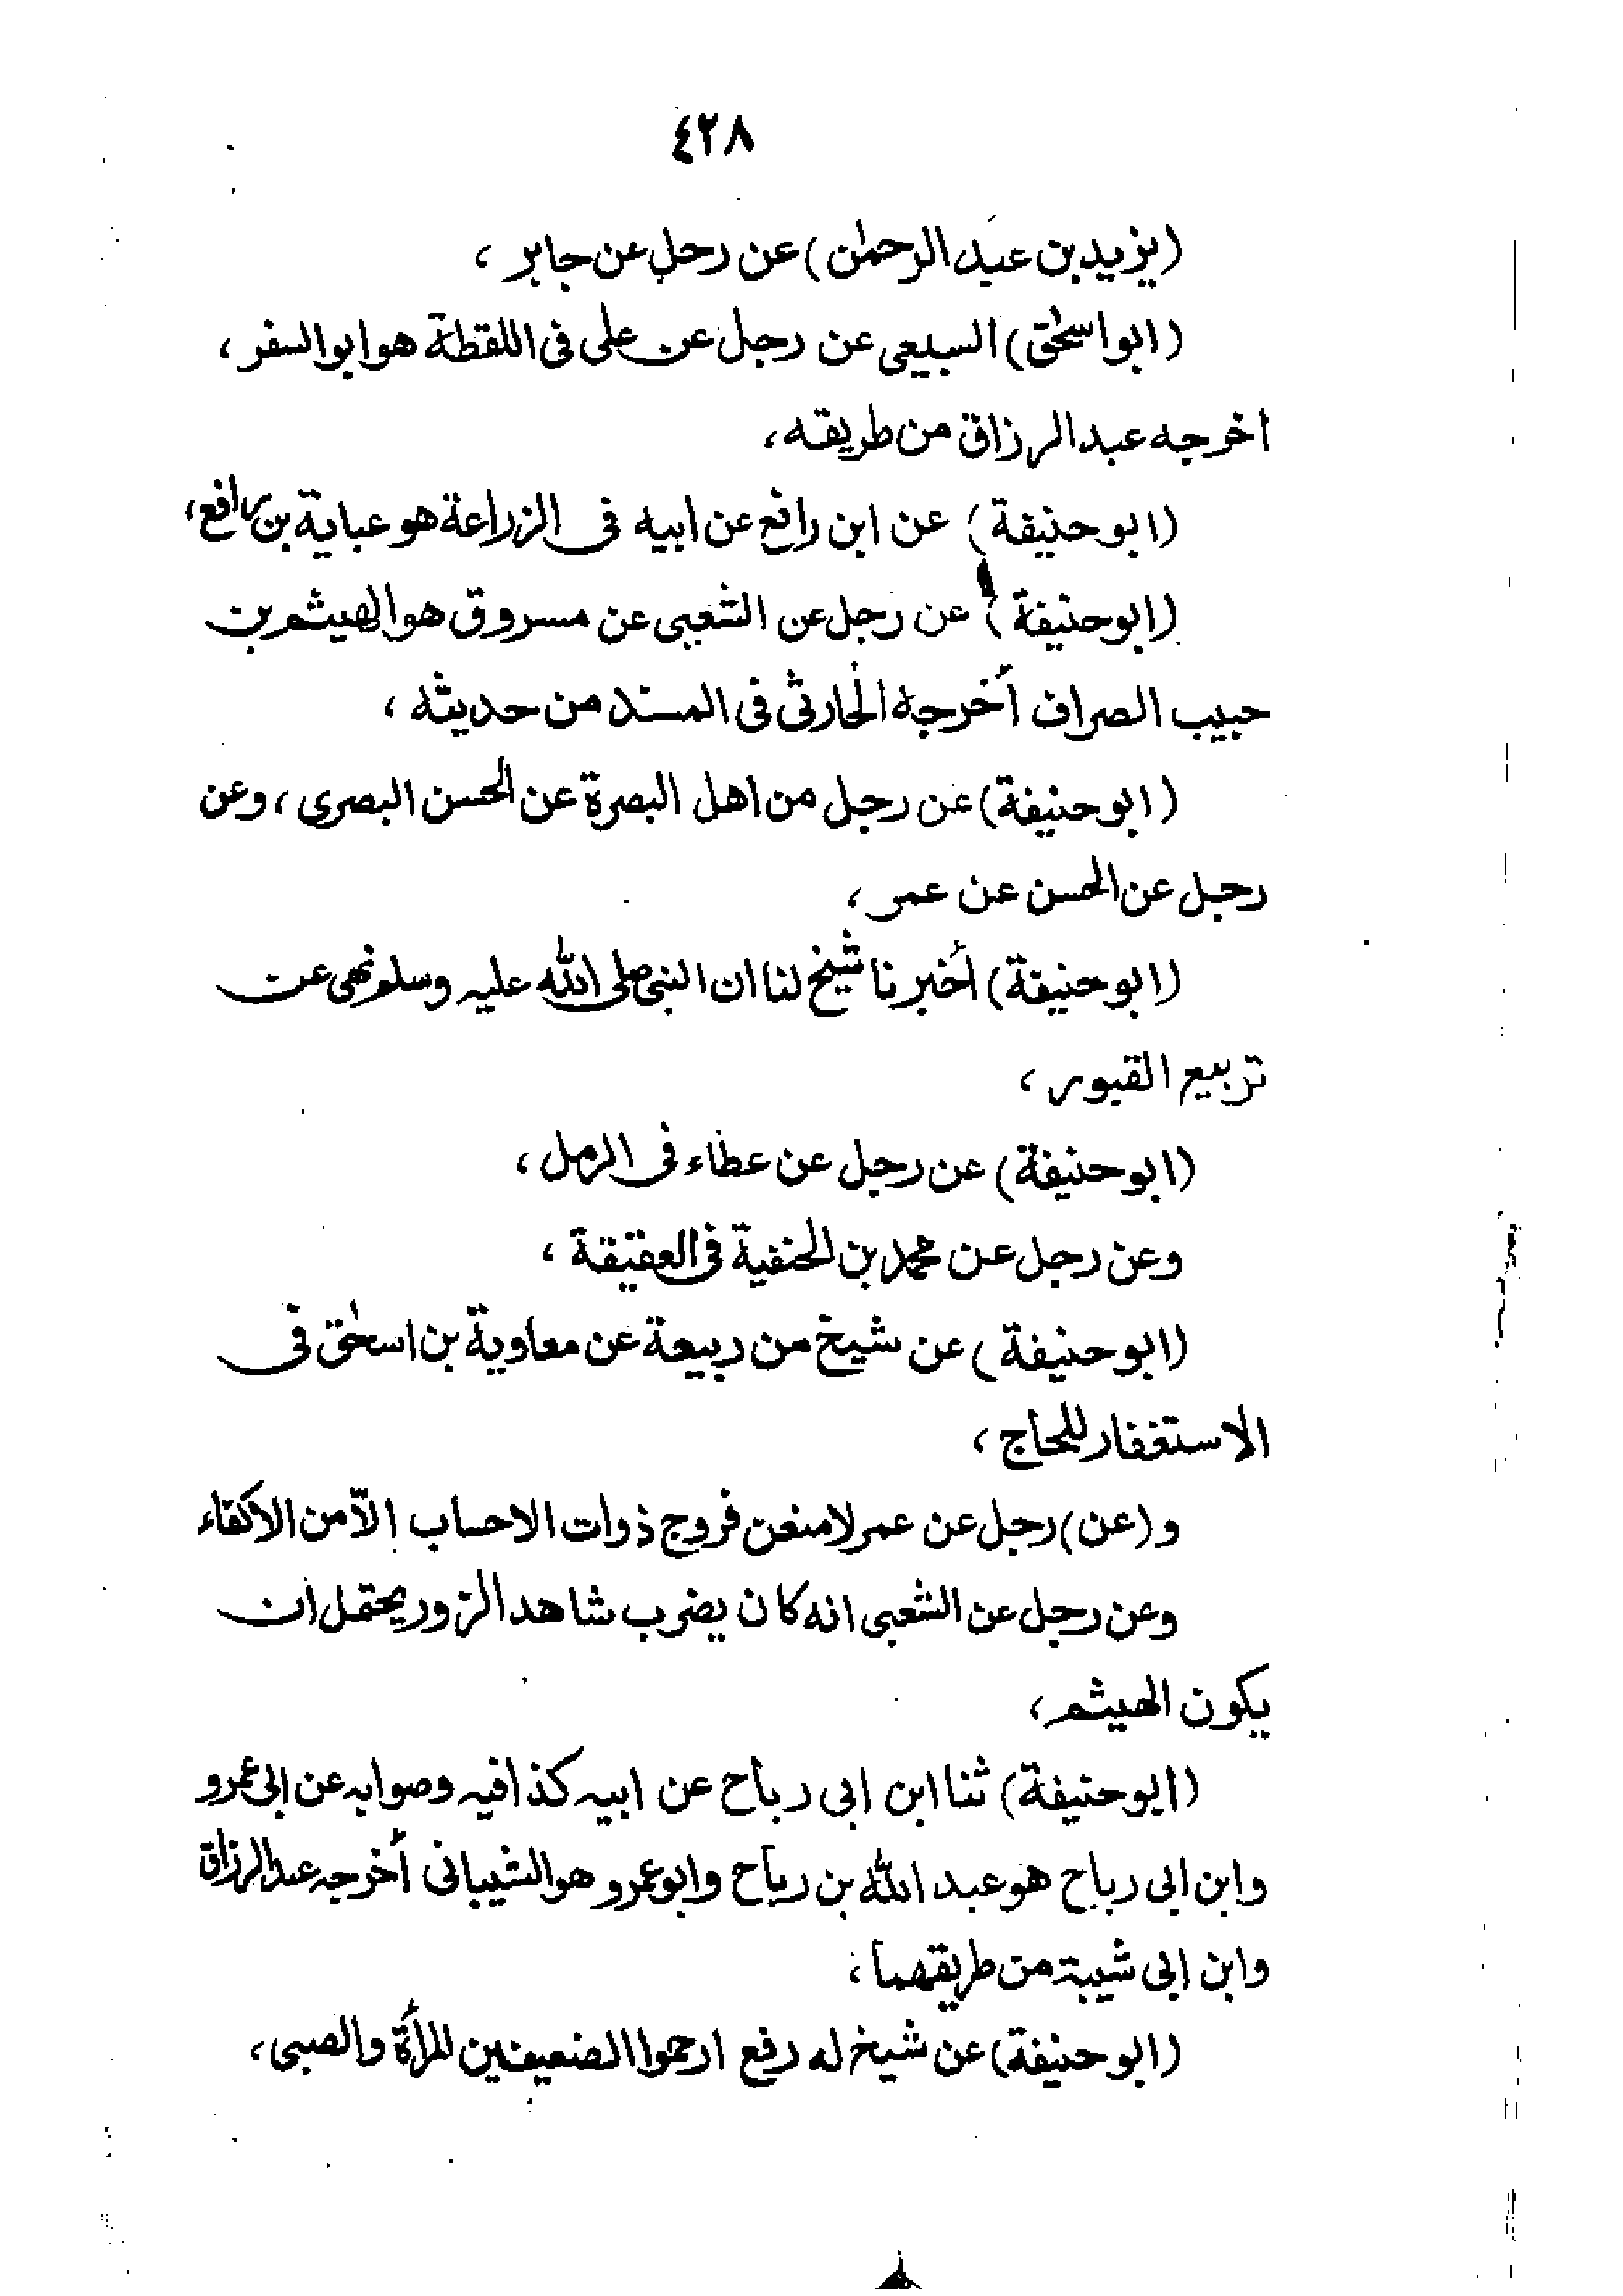 ٤٢٨
(يزيد بن عبد الرحمٰن) عن رجل عن جابر،
(ابو اسحٰق) السبيعى عن رجل عن على فى اللقطة هو ابو السفر،
اخرجه عبد الرزاق من طريقه،
(ابو حنيفة) عن ابن رافع عن ابيه فى الزراعة هو عباية بن رافع،
(ابو حنيفة) عن رجل عن الشعبى عن مسروق هو الهيثم بن
حبيب الصراف أخرجه الحارثى فى المسند من حديثه،
(ابو حنيفة) عن رجل من اهل البصرة عن الحسن البصرى، وعن
رجل عن الحسن عن عمر،
(ابو حنيفة) أخبرنا شيخ لنا ان النبى صلى الله عليه وسلم نهى عن
تربيع القبور،
(ابو حنيفة) عن رجل عن عطاء فى الرمل،
وعن رجل عن محمد بن الحنفية فى العقيقة،
(ابو حنيفة) عن شيخ من ربيعة عن معاوية بن اسحٰق فى
الاستغفار للحاج،
و(عن) رجل عن عمر لامنعن فروج ذوات الاحساب الّا من الاكفاء
وعن رجل عن الشعبى انه كان يضرب شاهد الزور يحتمل ان
يكون الهيثم،
(ابو حنيفة) ثنا ابن ابى رباح عن ابيه كذا فيه وصوابه عن ابى عمرو
وابن ابى رباح هو عبد الله بن رباح وابو عمرو هو الشيبانى أخرجه عبد الرزاق
وابن ابى شيبة من طريقهما،
(ابو حنيفة) عن شيخ له رفع ارحموا الضعيفين المرأة والصبى،